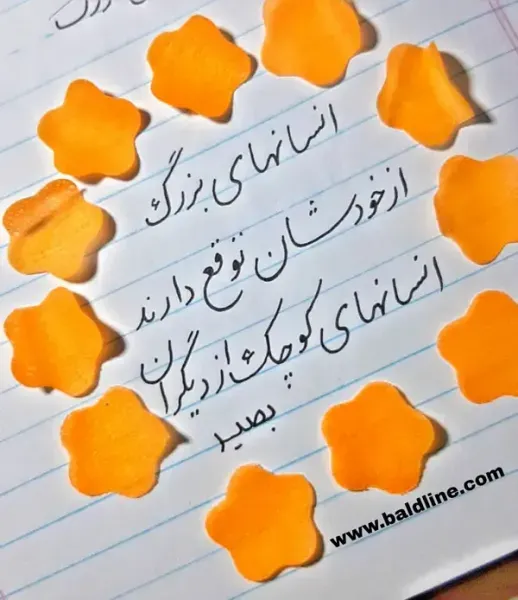 انسانهای بزرگ
از خودشان توقع دارند
انسانهای کوچک از دیگران
بصیر
www.baldline.com